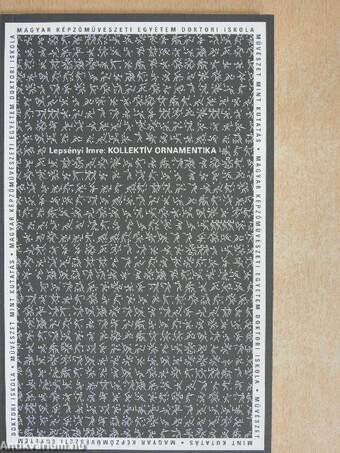 MAGYAR KÉPZŐMŰVÉSZETI EGYETEM DOKTORI ISKOLA
MŰVÉSZET MINT KUTATÁS • MAGYAR KÉPZŐMŰVÉSZETI EGYETEM DOKTORI ISKOLA • MŰVÉSZET
MINT KUTATÁS • MAGYAR KÉPZŐMŰVÉSZETI EGYETEM
DOKTORI ISKOLA • MŰVÉSZET MINT KUTATÁS • MAGYAR KÉPZŐMŰVÉSZETI EGYETEM DOKTORI ISKOLA
Lepsényi Imre: KOLLEKTÍV ORNAMENTIKA
Antikvarium.hu